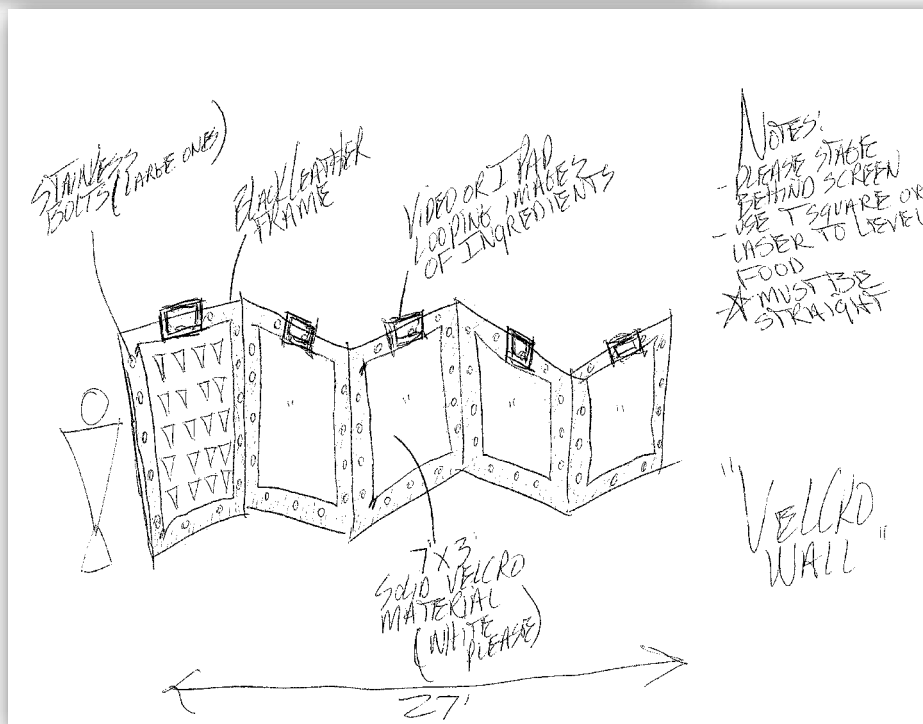 STAINLESS
BOLTS (LARGE ONES)
BLACK LEATHER
FRAME
VIDEO OR I PAD
LOOPING IMAGES
OF INGREDIENTS
NOTES:
- PLEASE STAGE
BEHIND SCREEN
- USE T SQUARE OR
LASER TO LEVEL
FOOD
☆ MUST BE
STRAIGHT
"
"
"
"
7'X3'
SOLID VELCRO
MATERIAL
(WHITE
PLEASE)
"VELCRO
WALL"
27'